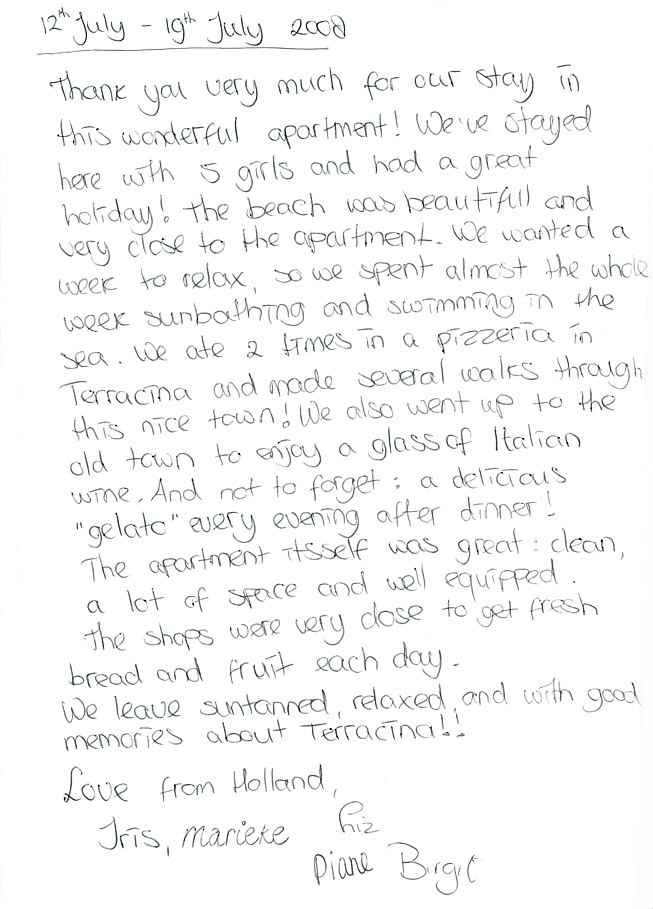 12th July - 19th July 2008
Thank you very much for our stay in
this wonderful apartment! We've stayed
here with 5 girls and had a great
holiday! the beach was beautifull and
very close to the apartment. We wanted a
week to relax, so we spent almost the whole
week sunbathing and swimming in the
sea. We ate 2 times in a pizzeria in
Terracina and made several walks through
this nice town! We also went up to the
old town to enjoy a glass of Italian
wine. And not to forget: a delicious
"gelato" every evening after dinner!
The apartment itsself was great: clean,
a lot of space and well equipped.
the shops were very close to get fresh
bread and fruit each day.
We leave suntanned, relaxed, and with good
memories about Terracina!!
Love from Holland,
Iris, Marieke
Diane Birgit